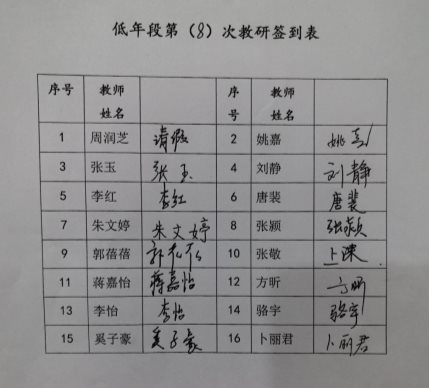 低年段第（8）次教研签到表
序号 教师姓名 序号 教师姓名
1 周润芝 请假 2 姚嘉 姚嘉
3 张玉 张玉 4 刘静 刘静
5 李红 李红 6 唐裴 唐裴
7 朱文婷 朱文婷 8 张颍 张颍
9 郭蓓蓓 郭蓓蓓 10 张敬 上课
11 蒋嘉怡 蒋嘉怡 12 方昕 方昕
13 李怡 李怡 14 骆宇 骆宇
15 奚子豪 奚子豪 16 卜丽君 卜丽君